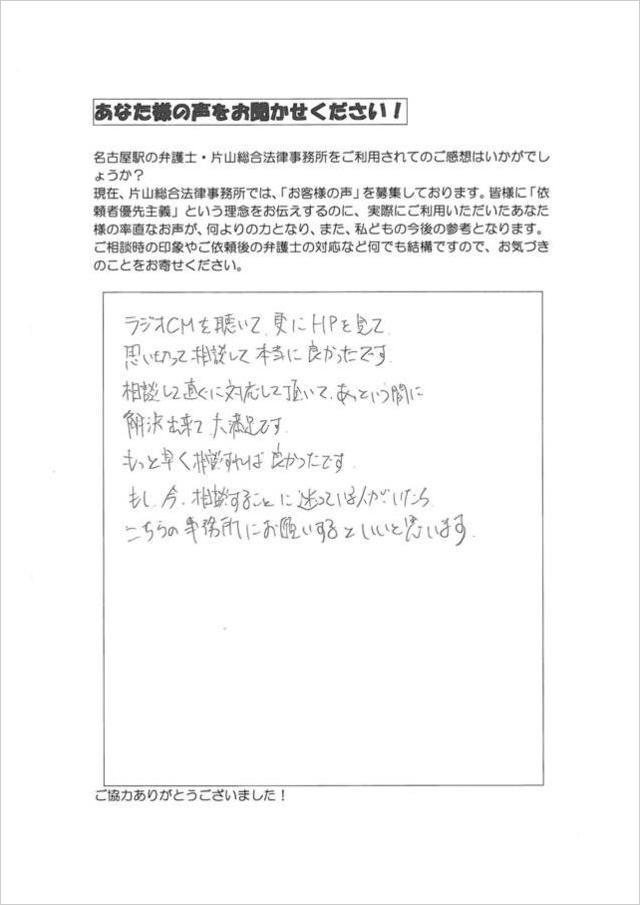 あなた様の声をお聞かせください！
名古屋駅の弁護士・片山総合法律事務所をご利用されてのご感想はいかがでし
ょうか？
現在、片山総合法律事務所では、「お客様の声」を募集しております。皆様に「依
頼者優先主義」という理念をお伝えするのに、実際にご利用いただいたあなた
様の率直なお声が、何よりの力となり、また、私どもの今後の参考となります。
ご相談時の印象やご依頼後の弁護士の対応など何でも結構ですので、お気づき
のことをお寄せください。
ラジオCMを聴いて、更にHPを見て、
思い切って相談して本当に良かったです。
相談して直ぐに対応して頂いて、あっという間に
解決出来て大満足です。
もっと早く相談すれば良かったです。
もし、今、相談することに迷っている人がいたら
こちらの事務所にお願いするといいと思います。
ご協力ありがとうございました！